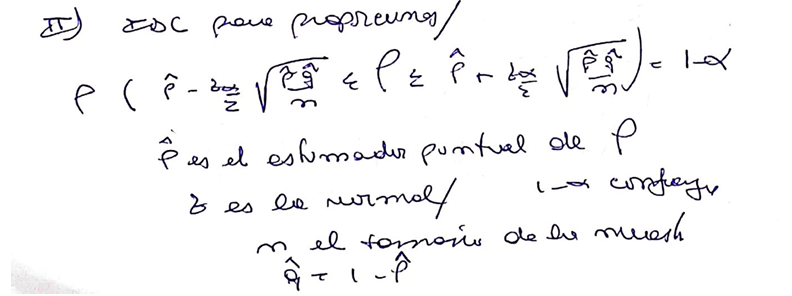 II) IDC para proporciones/
P ( p̂ - z α/2 √(p̂ q̂ / n) ≤ P ≤ p̂ + z α/2 √(p̂ q̂ / n) ) = 1-α
p̂ es el estimador puntual de P
z es la normal/ 1-α confianza
n el tamaño de la muestra
q̂ = 1 - p̂